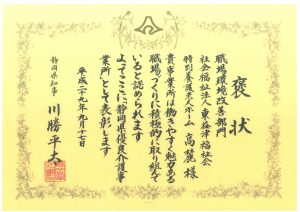 褒状
職場環境改善部門
社会福祉法人 東益津福祉会
特別養護老人ホーム 高麓 様
貴事業所は働きやすく魅力ある
職場づくりに積極的に取り組んで
いると認められます
よってここに静岡県優良介護事
業所として表彰します
平成二十九年九月十七日
静岡県知事 川勝平太